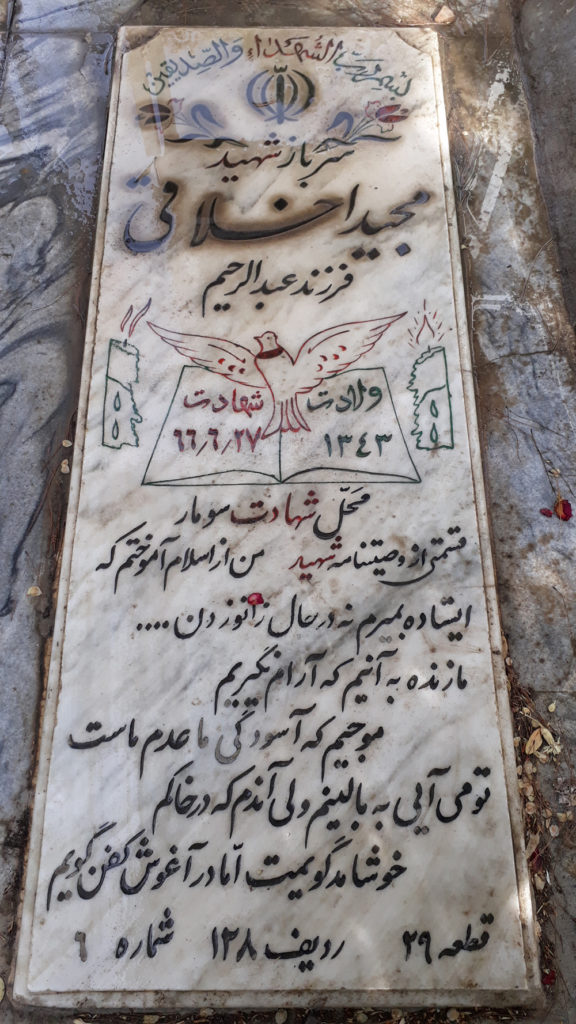 بسم رب الشهداء والصدیقین
سرباز شهید
مجید اخلاقی
فرزند عبدالرحیم
ولادت شهادت
۱۳۴۳ ۶۶٫۶٫۲۷
محلّ شهادت سومار
قسمتی از وصیتنامه شهید من از اسلام آموختم که
ایستاده بمیرم نه در حال زانو زدن ....
ما زنده به آنیم که آرام نگیریم
موجیم که آسودگی ما عدم ماست
تو می آیی به بالینم ولی آندم که در خاکم
خوشامد گویمت امّا در آغوش کفن گویم
قطعه ۲۹ ردیف ۱۲۸ شماره ۶